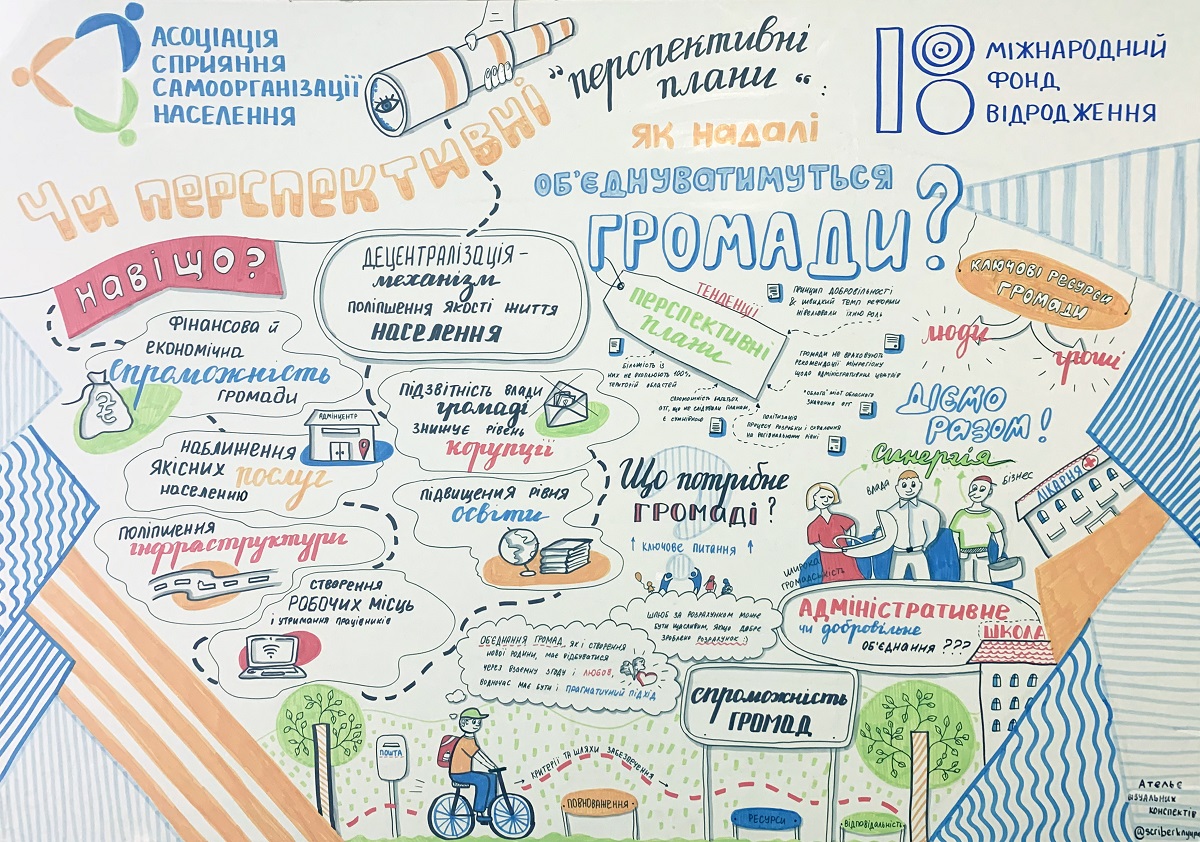 АСОЦІАЦІЯ
СПРИЯННЯ
САМООРГАНІЗАЦІЇ
НАСЕЛЕННЯ
Чи перспективні
"перспективні
плани"
як надалі
об'єднуватимуться
громади?
МІЖНАРОДНИЙ
ФОНД
ВІДРОДЖЕННЯ
НАВІЩО?
ДЕЦЕНТРАЛІЗАЦІЯ –
механізм
поліпшення якості життя
населення
Фінансова й
економічна
спроможність
громади
АДМІНЦЕНТР
Наближення
якісних послуг
населенню
поліпшення
інфраструктури
створення
робочих місць
і утримання працівників
підзвітність влади
громаді
знижує рівень
корупції
підвищення рівня
освіти
ТЕНДЕНЦІЇ
ПЕРСПЕКТИВНІ
ПЛАНИ
принцип добровільності
& швидкий темп реформи
нівелювали їхню роль
громади не враховують
рекомендації мінрегіону
щодо адміністративних центрів
більшість із
них не охоплюють 100%
територій областей
спроможність багатьох
ОТГ, що не слідували планам,
є сумнівною
політизація
процесу розробки і схвалення
на регіональному рівні
"облога" міст обласного
значення ОТГ
КЛЮЧОВІ РЕСУРСИ
ГРОМАДИ
люди
гроші
ДІЄМО
РАЗОМ!
синергія
влада
бізнес
широка
громадськість
ЛІКАРНЯ
Що потрібне
громаді?
↑ ключове питання ↑
шлюб за розрахунком може
бути щасливим, якщо добре
зроблені розрахунок :)
об'єднання громад, як і створення
нової родини, має відбуватися
через взаємну згоду і любов,
водночас має бути і прагматичний підхід
АДМІНІСТРАТИВНЕ
чи добровільне
об'єднання ???
ШКОЛА
спроможність
громад
ПОШТА
критерії та шляхи забезпечення
ПОВНОВАЖЕННЯ
РЕСУРСИ
ВІДПОВІДАЛЬНІСТЬ
Ательє
візуальних
конспектів